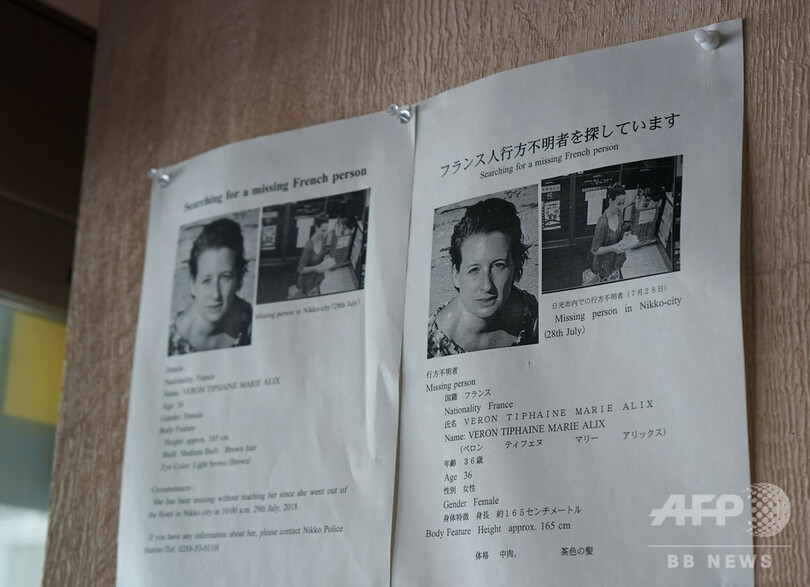 Searching for a missing French person
Missing person in Nikko-city (28th July)
Details :
Nationality: France
Name: VERON TIPHAINE MARIE ALIX
Age: 36
Gender: Female
Body Feature
Height: approx. 165 cm
Built: Medium Built Brown hair
Eye Color: Light brown (Brown)
Circumstances :
She has been missing without reaching her since she went out
the Hotel in Nikko city at 10:00 a.m. 29th July, 2018.
If you have any information about her, please contact Nikko Police
Station (Tel: 0288-53-0110)
フランス人行方不明者を探しています
Searching for a missing French person
日光市内での行方不明者(7月28日)
Missing person in Nikko-city
(28th July)
行方不明者
Missing person
国籍 フランス
Nationality France
氏名 VERON TIPHAINE MARIE ALIX
Name: VERON TIPHAINE MARIE ALIX
(ベロン ティフェヌ マリー アリックス)
年齢 36歳
Age 36
性別 女性
Gender Female
身体特徴 身長 約165センチメートル
Body Feature Height approx. 165 cm
体格 中肉、 茶色の髪
AFP
BB NEWS